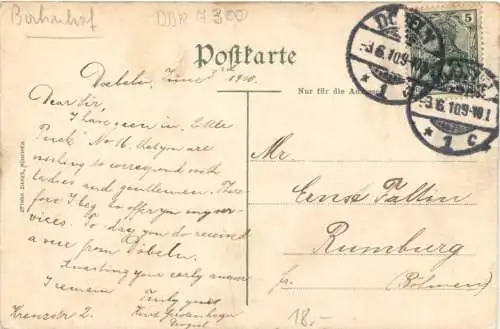 Bahnhof
DDR 7300
Postkarte
Nur für die Adresse
Doebeln, June 3rd 1910.
Dear Sir,
I have seen in "Little
Puck" No 16, that you are
wishing to correspond with
ladies and gentlemen. There
fore I beg to offer you my ser-
vices. To day you do received
a view from Döbeln.
Awaiting your early answer
I remain
Truly yours
Kurt
Kreuzstr 2.
Mr.
Ernst Faltin
Rumburg
fr. (Böhmen)
18.-
5
DÖBELN
-3.6.10.9-10
* 1
-3.6.10.9-10V.
* 1 c